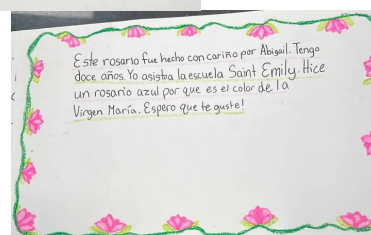 Este rosario fue hecho con cariño por Abigail. Tengo
doce años. Yo asisto a la escuela Saint Emily. Hice
un rosario azul por que es el color de la
Virgen María. Espero que te guste!